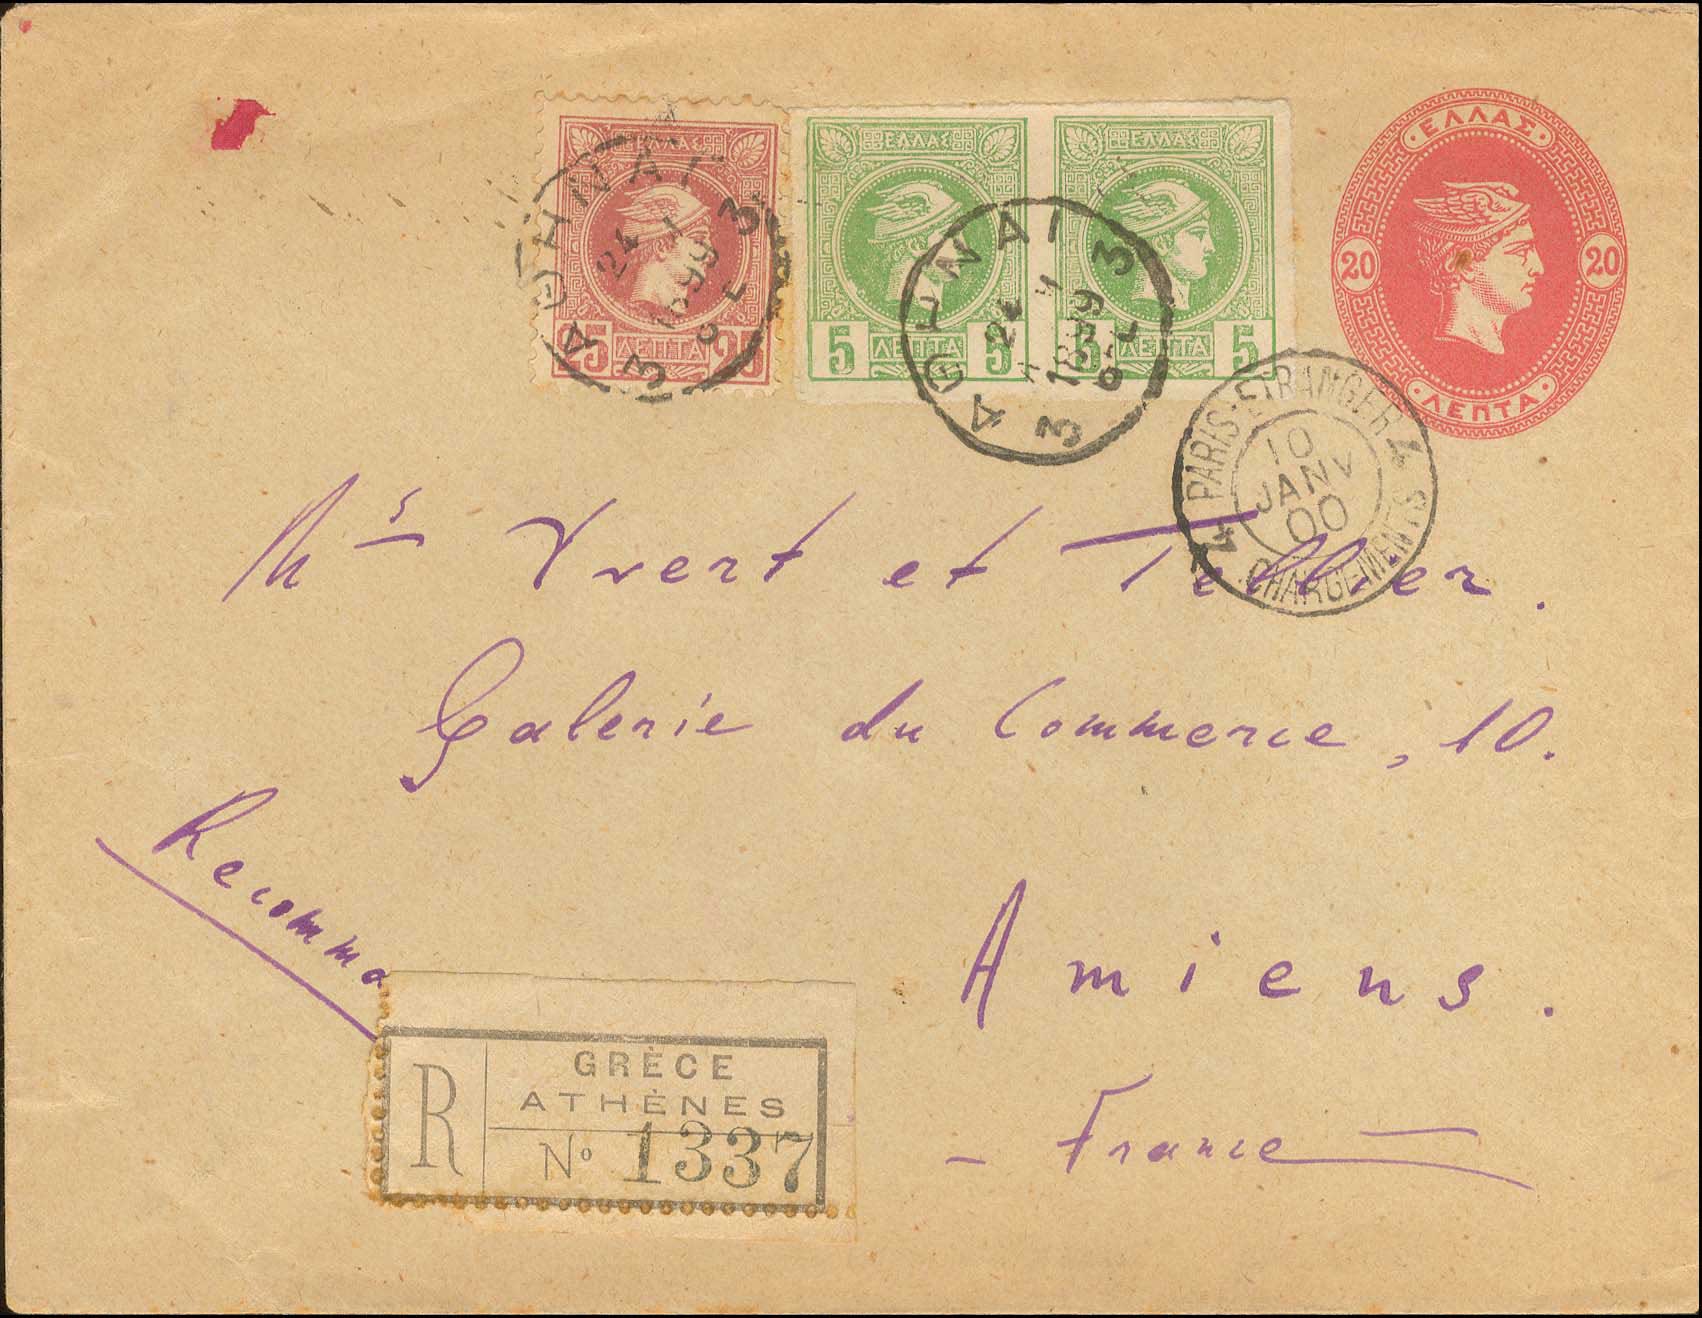 ΕΛΛΑΣ
25 ΛΕΠΤΑ 25
ΕΛΛΑΣ
5 ΛΕΠΤΑ 5
ΕΛΛΑΣ
5 ΛΕΠΤΑ 5
ΕΛΛΑΣ
20 20
ΛΕΠΤΑ
ΑΘΗΝΑΙ 3
24
1899
3
ΑΘΗΝΑΙ 3
24
1899
3
4 PARIS-ETRANGER 4
10
JANV
00
CHARGEMENTS
Mrs Yvert et Tellier.
Galerie du Commerce, 10.
Recomma
Amiens.
- France
R
GRÈCE
ATHÈNES
No 1337